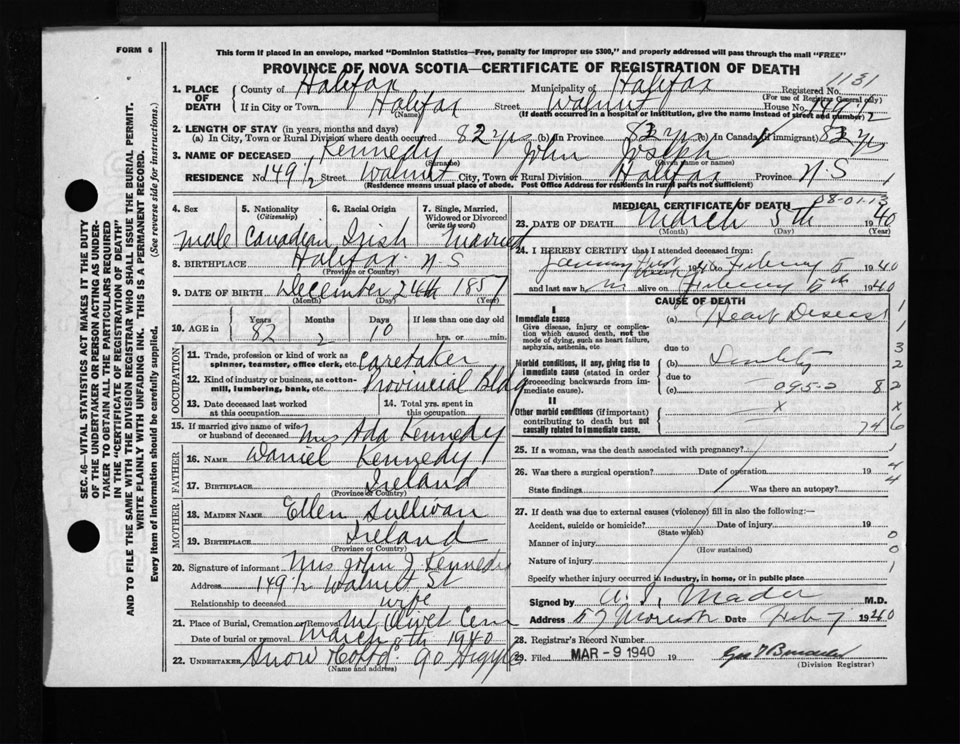 FORM 6
This form if placed in an envelope, marked "Dominion Statistics—Free, penalty for improper use $300," and properly addressed will pass through the mail "FREE"
PROVINCE OF NOVA SCOTIA—CERTIFICATE OF REGISTRATION OF DEATH
1131
1. PLACE OF DEATH County of Halifax Municipality of Halifax Registered No.
(For use of Registrar General only)
If in City or Town Halifax Street Walnut House No. 149 1/2
(Name) (If death occurred in a hospital or institution, give the name instead of street and number)
2. LENGTH OF STAY (in years, months and days)
(a) In City, Town or Rural Division where death occurred 82 yrs (b) In Province 82 yrs (c) In Canada (if immigrant) 82 yrs
3. NAME OF DECEASED Kennedy John Joseph
(Surname) (Given name or names)
RESIDENCE No. 149 1/2 Street Walnut City, Town or Rural Division Halifax Province N.S
(Residence means usual place of abode. Post Office Address for residents in rural parts not sufficient)
4. Sex 5. Nationality (Citizenship) 6. Racial Origin 7. Single, Married, Widowed or Divorced (write the word)
male Canadian Irish Married
8. BIRTHPLACE Halifax N.S
(Province or Country)
9. DATE OF BIRTH December 24th 1857
(Month) (Day) (Year)
10. AGE in Years Months Days If less than one day old
82 2 10 hrs. or min.
OCCUPATION
11. Trade, profession or kind of work as spinner, teamster, office clerk, etc. Caretaker
12. Kind of industry or business, as cotton-mill, lumbering, bank, etc. Provincial Bldg
13. Date deceased last worked at this occupation 14. Total yrs. spent in this occupation
15. If married give name of wife or husband of deceased Mrs Ada Kennedy
FATHER
16. NAME Daniel Kennedy
17. BIRTHPLACE Ireland
(Province or Country)
MOTHER
18. MAIDEN NAME Ellen Sullivan
19. BIRTHPLACE Ireland
(Province or Country)
20. Signature of informant Mrs John J Kennedy
Address 149 1/2 Walnut St
Relationship to deceased wife
21. Place of Burial, Cremation or Removal Mt Olivet Cem
Date of burial or removal March 8th 1940
22. UNDERTAKER Snow & Co Ltd 90 Argyle
(Name and address)
MEDICAL CERTIFICATE OF DEATH
08-01-13
23. DATE OF DEATH March 5th 1940
(Month) (Day) (Year)
24. I HEREBY CERTIFY that I attended deceased from:
January first week 1940 to February 5 1940
and last saw h im alive on February 5th 1940
CAUSE OF DEATH
I
Immediate cause (a) Heart Disease
Give disease, injury or complication which caused death, not the mode of dying, such as heart failure, asphyxia, asthenia, etc.
due to
Morbid conditions, if any, giving rise to immediate cause (stated in order proceeding backwards from immediate cause). (b) Senility
due to
(c) 095-2
II
Other morbid conditions (if important) contributing to death but not causally related to immediate cause. x
1
1
3
2
2
8 2
x x
74 6
25. If a woman, was the death associated with pregnancy?
26. Was there a surgical operation? Date of operation 19
State findings Was there an autopsy?
27. If death was due to external causes (violence) fill in also the following:—
Accident, suicide or homicide? Date of injury 19
(State which)
Manner of injury
(How sustained)
Nature of injury
Specify whether injury occurred in industry, in home, or in public place
1
4
4
0
0
1
Signed by A. I. Mader M.D.
Address 57 Morris St Date Feb 7 1940
28. Registrar's Record Number
29. Filed MAR - 9 1940 19
(Division Registrar)
SEC. 46—VITAL STATISTICS ACT MAKES IT THE DUTY OF THE UNDERTAKER OR PERSON ACTING AS UNDERTAKER TO OBTAIN ALL THE PARTICULARS REQUIRED IN THE "CERTIFICATE OF REGISTRATION OF DEATH"
AND TO FILE THE SAME WITH THE DIVISION REGISTRAR WHO SHALL ISSUE THE BURIAL PERMIT.
WRITE PLAINLY WITH UNFADING INK. THIS IS A PERMANENT RECORD.
Every item of information should be carefully supplied. (See reverse side for instructions.)